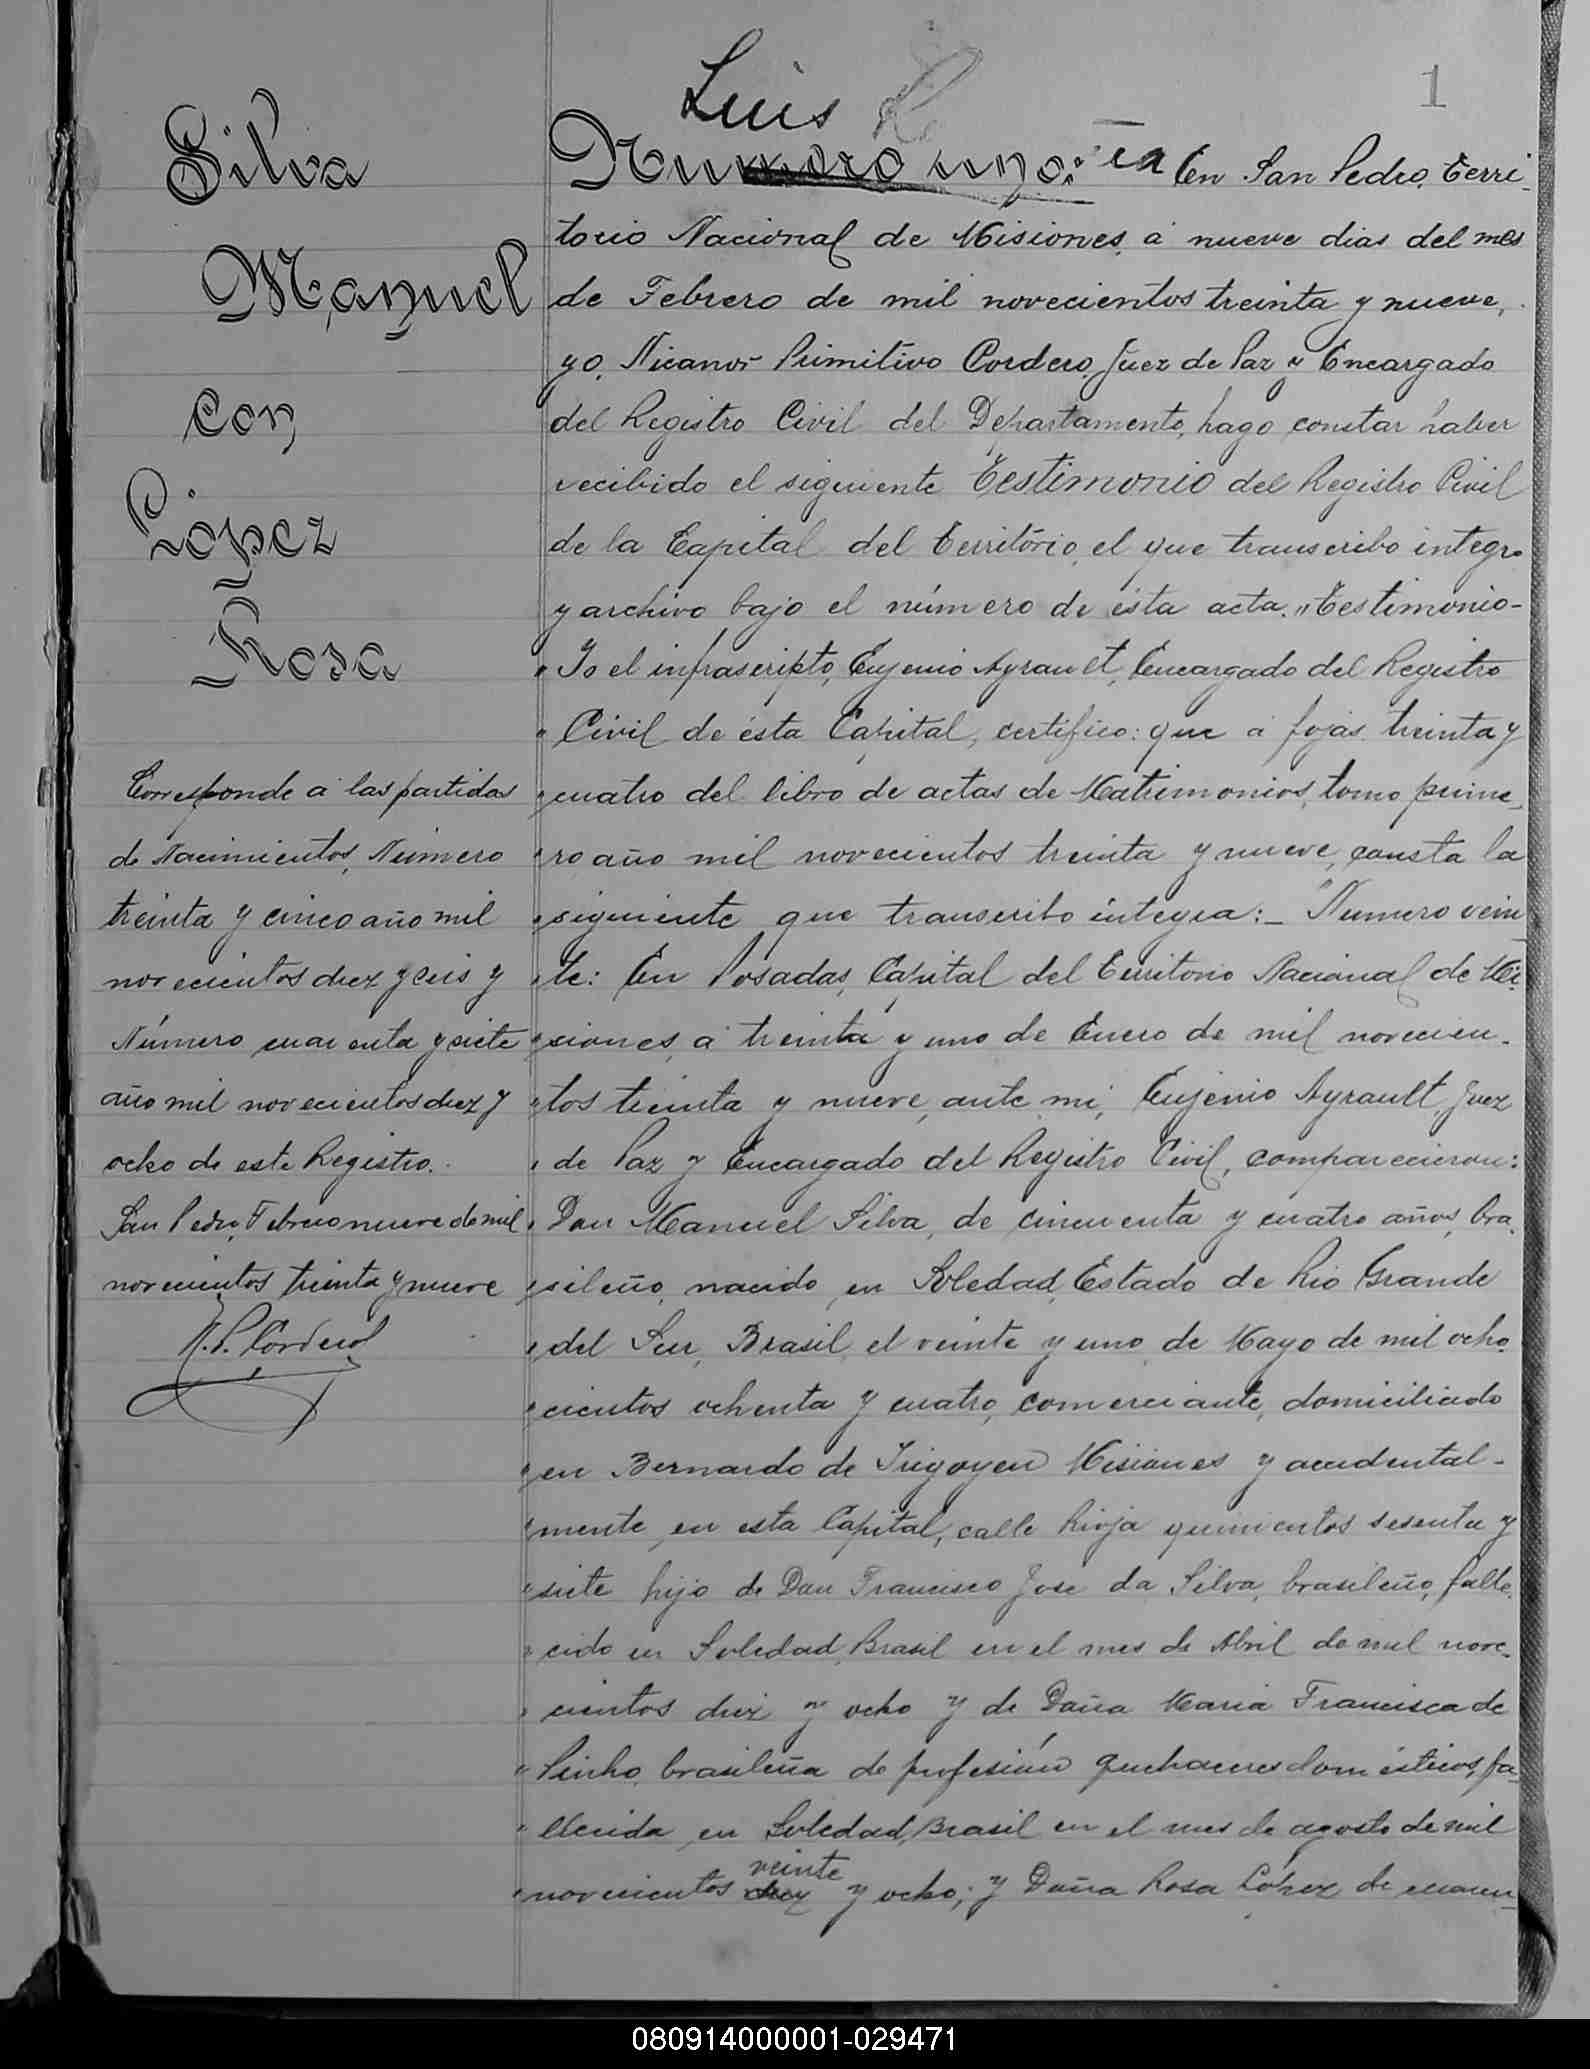 1
Luis
Silva
Manuel
con
López
Rosa
Corresponde á las partidas
de Nacimientos, Número
treinta y cinco año mil
novecientos diez y seis y
Número cuarenta y siete
año mil novecientos diez y
ocho de este Registro.
San Pedro, Febrero nueve de mil
novecientos treinta y nueve
N. P. Cordero
Numero uno: En San Pedro, Terri-
torio Nacional de Misiones, á nueve dias del mes
de Febrero de mil novecientos treinta y nueve,
yo, Nicanor Primitivo Cordero, Juez de Paz y Encargado
del Registro Civil del Departamento, hago constar haber
recibido el siguiente Testimonio del Registro Civil
de la Capital del Território, el que transcribo integro
y archivo bajo el número de ésta acta. "Testimonio-
" Yo el infrascripto, Eugenio Ayrault, Encargado del Registro
" Civil de ésta Capital, certifico: que á fojas treinta y
" cuatro del libro de actas de Matrimonios, tomo prime-
" ro año mil novecientos treinta y nueve, consta la
" siguiente que transcribo íntegra:_ "Numero vein
" te: En Posadas, Capital del Territorio Nacional de Mi-
" siones, á treinta y uno de Enero de mil novecien-
" tos treinta y nueve, ante mi, Eugenio Ayrault, Juez
" de Paz y Encargado del Registro Civil, comparecieron:
" Don Manuel Silva, de cincuenta y cuatro años, bra-
" sileño, nacido en Soledad, Estado de Rio Grande
" del Sur, Brasil, el veinte y uno de Mayo de mil ocho-
" cientos ochenta y cuatro, comerciante, domiciliado
" en Bernardo de Irigoyen Misiones y accidental-
" mente en esta Capital, calle Rioja quinientos sesenta y
" siete hijo de Don Francisco José da Silva, brasileño, falle-
" cido en Soledad, Brasil en el mes de Abril de mil nove-
" cientos diez y ocho y de Doña Maria Francisca de
" Pinho, brasileña de profesión quehaceres domésticos, fa-
" llecida en Soledad, Brasil en el mes de agosto de mil
veinte
" novecientos diez y ocho; y Doña Rosa López de cuaren-
080914000001-029471